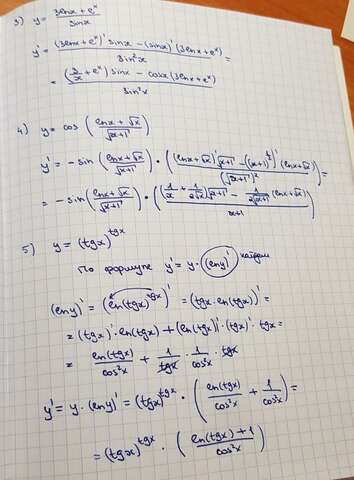 3) y = (3lnx + eˣ)/sinx
y' = ((3lnx + eˣ)' sinx − (sinx)' (3lnx + eˣ))/sin²x =
= ((3/x + eˣ) sinx − cosx (3lnx + eˣ))/sin²x
4) y = cos ((lnx + √x)/√(x+1))
y' = − sin ((lnx + √x)/√(x+1)) · (((lnx + √x)' √(x+1) − ((x+1)^(1/2))' (lnx + √x))/(√(x+1))²) =
= − sin ((lnx + √x)/√(x+1)) · (((1/x + 1/(2√x)) √(x+1) − 1/(2√(x+1)) (lnx + √x))/(x+1))
5) y = (tgx)^(tgx)
По формуле y' = y · (lny)' найдем
(lny)' = (ln(tgx)^(tgx))' = (tgx · ln(tgx))' =
= (tgx)' · ln(tgx) + (ln(tgx))' · (tgx)' · tgx =
= ln(tgx)/cos²x + 1/tgx · 1/cos²x · tgx
y' = y · (lny)' = (tgx)^(tgx) · (ln(tgx)/cos²x + 1/cos²x) =
= (tgx)^(tgx) · ((ln(tgx) + 1)/cos²x)